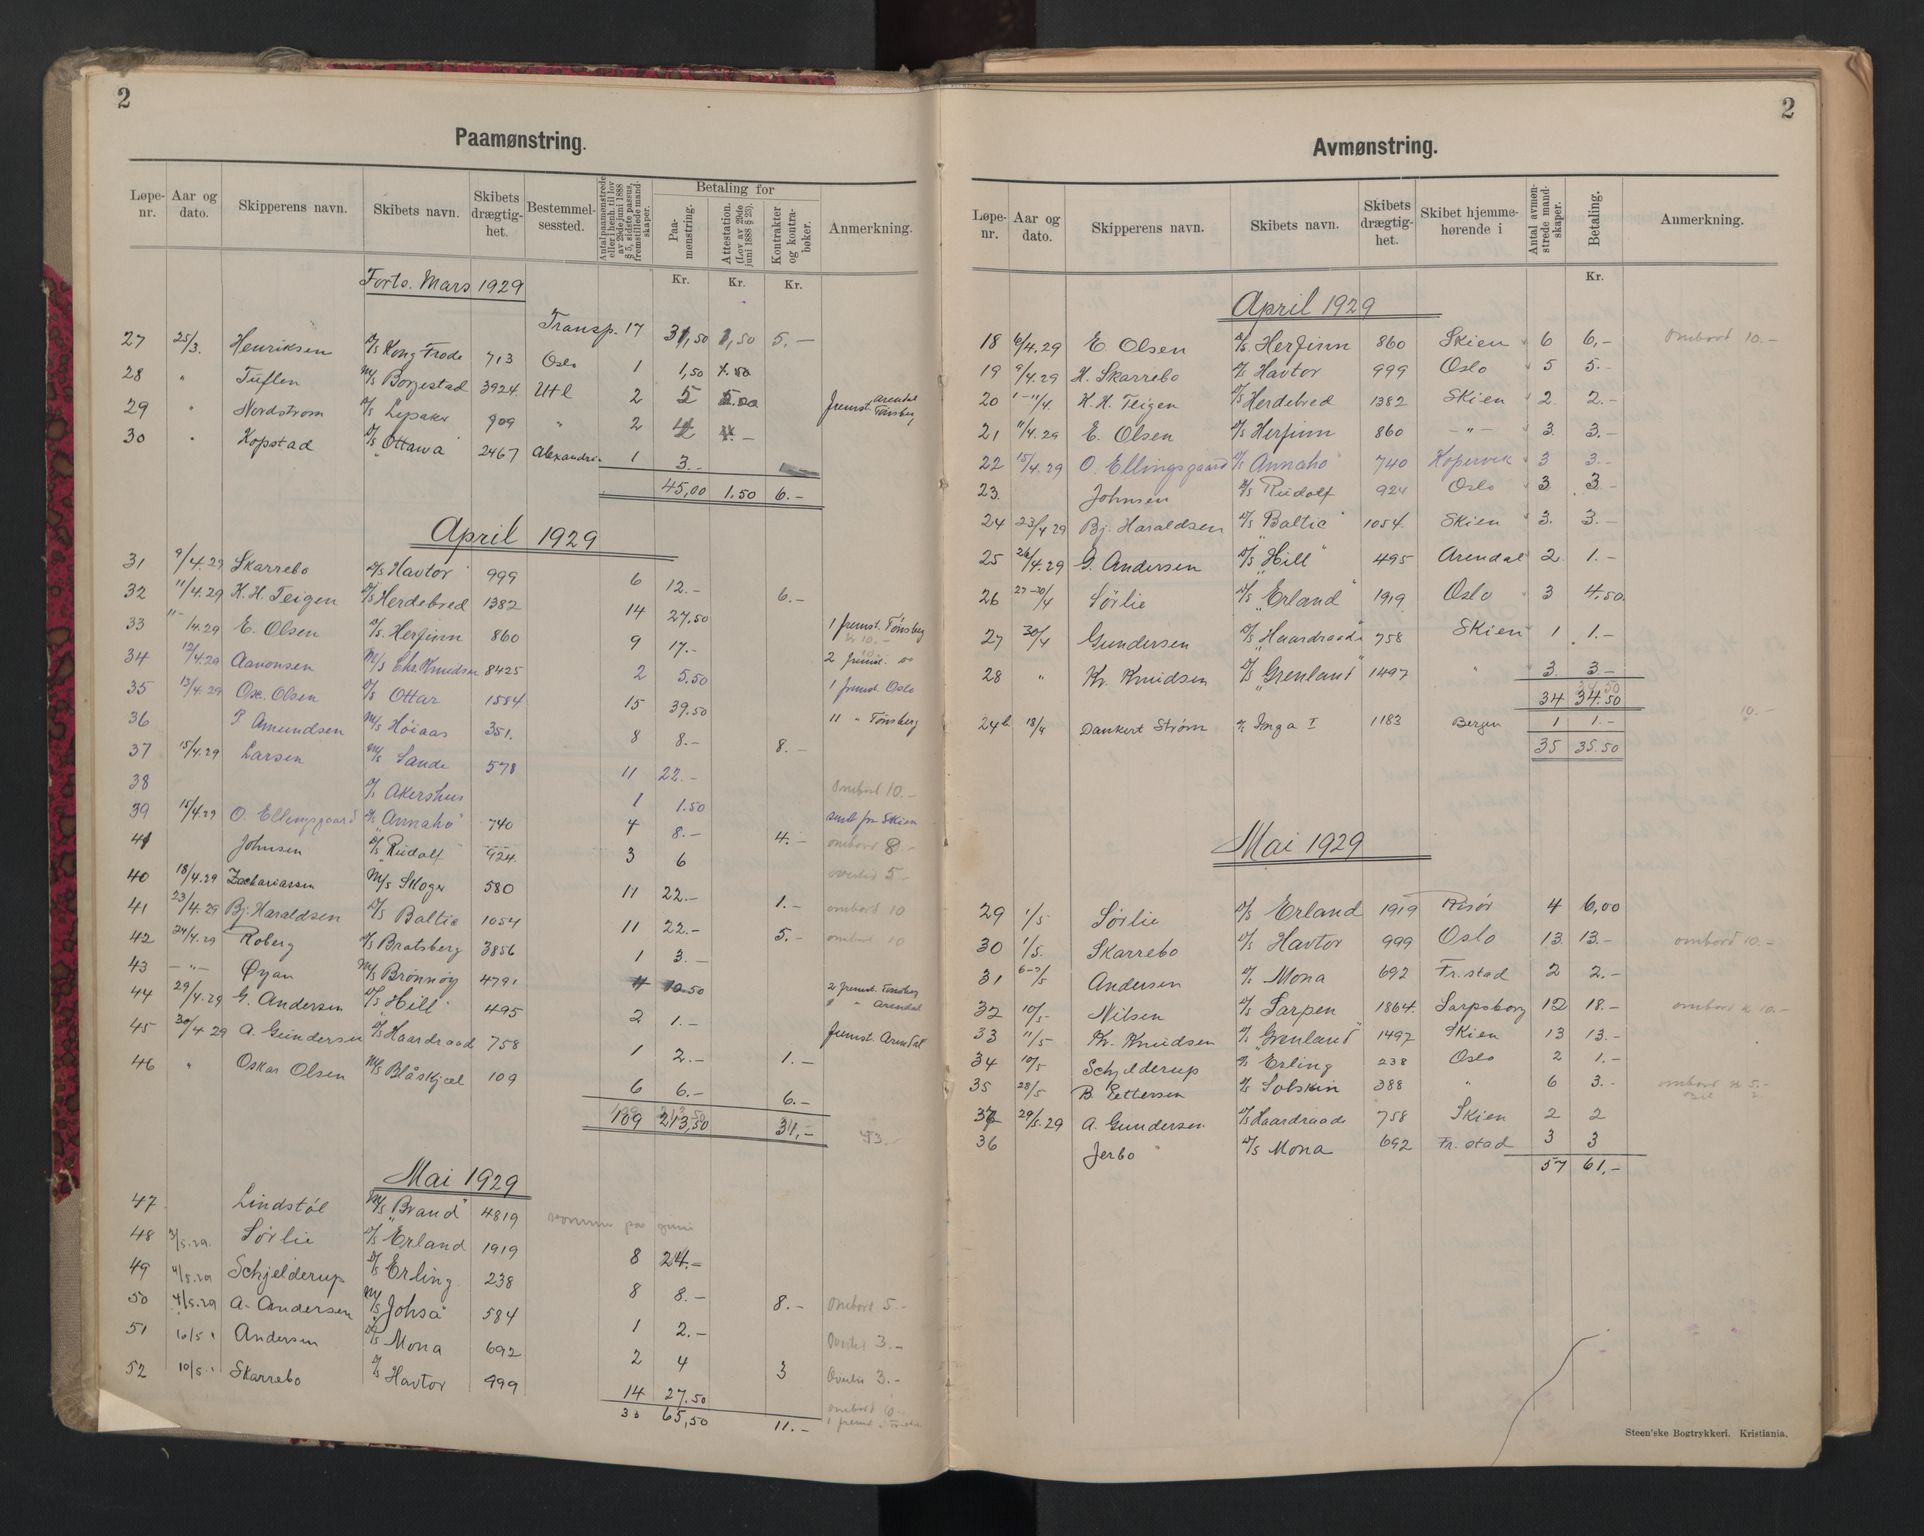 2
Paamønstring.
Løpe-nr. Aar og dato. Skipperens navn. Skibets navn. Skibets drægtig-het. Bestemmel-sessted. Antal paamønstrede eller i henh. til lov av 29de juni 1888 § 5, sidste passus, fremstillede mand-skaper. Betaling for Paa-mønstring. Attestation. (Lov av 29de juni 1888 § 25). Kontrakter og kontra-bøker. Anmerkning.
Kr. Kr. Kr.
Forts. Mars 1929
Transp. 17 31,50 1,50 5.-
27 25/3. Henriksen D/S Kong Frode 713 Oslo 1 1,50
28 " Tuflen M/S Borgestad 3924 Utl 2 5
29 " Nordstrøm D/S Lysaker 909 " 2 4 fremst. Arendal Tønsberg
30 " Kopstad D/S "Ottawa" 2467 Alexandria 1 3.-
45,00 1.50 6.-
April 1929
31 9/4.29 Skarrebo D/S Havtor 999 6 12.- 6.-
32 11/4.29 K. H. Teigen D/S Herdebred 1382 14 27,50
33 "-/4.29 E. Olsen D/S Herfinn 860 9 17.- 1 fremst. Tønsberg
34 12/4.29 Aanonsen M/S Chr. Knudsen 8425 2 5.50 2 fremst.
35 13/4.29 Osc. Olsen D/S Ottar 1584 15 39.50 1 fremst. Oslo
36 P Amundsen M/S Høiaas 351. 8 8.- 8.- 11 " Tønsberg
37 15/4.29 Larsen M/S Sande 578 11 22.-
38 D/S Akershus 1 1.50 ombord 10.-
39 15/4.29 O. Ellingsgaard D/S "Annaho" 740 4 8.- 4.- sendt fra Skien
41 Johnsen D/S "Rudolf" 924. 3 6 ombord 8.-
40 18/4.29 Zachariassen M/S Skoger 580 11 22.- 1.- overtid 5.-
41 23/4.29 Bj. Haraldsen D/S Baltic 1054 11 22.- 5.- ombord 10
42 24/4.29 Roberg D/S Bratsberg 3856 1 3.- ombord 10
43 -"- Øyan M/S Brønnøy 4791 4 10.50 2 fremst. Tønsberg
44 29/4.29 G. Andersen D/S "Hill" 495 2 1.- " Arendal
45 30/4 29 A. Gundersen D/S Haardraade 758 1 2.- 1.- fremst. Arendal
46 " Oskar Olsen M/S Blåskjæl 109 6 6.- 6.-
109 213,50 31,-
Mai 1929
47 Lindstøl M/S "Brand" 4819 kommer paa juni
48 3/5.29. Sørlie D/S "Erland 1919 8 24.-
49 4/5.29 Schjelderup D/S Erling. 238 8 8.- 8.- ombord 5.-
50 4/5.29 A. Andersen M/S "Johså" 584 1 2.- Overtid 3.-
51 10/5 " Andersen D/S Mona 692 2 4 3 Overtid 3.-
52 10/5 " Skarrebo D/S Havtor 999 14 27.50 ombord 10.-
65,50 11.- 1 fremst. i
2
Avmønstring.
Løpe-nr. Aar og dato. Skipperens navn. Skibets navn. Skibets drægtig-het. Skibet hjemme-hørende i Antal avmøn-strede mand-skaper. Betaling. Anmerkning.
Kr.
April 1929
18 6/4.29 E. Olsen D/S. Herfinn 860 Skien 6 6,- ombord 10.-
19 9/4.29 H. Skarrebo D/S Havtor 999 Oslo 5 5.-
20 1-11/4. K. H. Teigen D/S Herdebred 1382 Skien 2. 2.-
21 11/4.29 E. Olsen D/S Herfinn 860 -"- 3. 3.-
22 15/4.29 O. Ellingsgaard D/S "Annaho" 740 Kopervik 3 3.-
23. Johnsen D/S Rudolf 924 Oslo 3. 3.-
24 23/4 29 Bj. Haraldsen D/S "Baltic" 1054. Skien 3. 3.-
25 26/4.29 G. Andersen D/S "Hill" 495 Arendal 2. 1.-
26 27-30/4 Sørlie D/S. "Erland" 1919. Oslo 3 4.50.
27 30/4 Gundersen D/S "Haardraade 758 Skien 1 1.-
28 " Kr. Knudsen D/S "Grenland" 1497 " 3. 3.-
34 34.50
24b 18/4 Dankert Strøm D/S Inga I 1183 Bergen 1 1.- 10.-
35 35.50
Mai 1929
29 1/5 Sørlie D/S Erland 1919 Risør 4 6,00
30 1/5. Skarrebo D/S Havtor 999 Oslo 13. 13.- ombord 10.-
31 6-7/5 Andersen D/S Mona 692 Fr.stad 2 2.-
32 10/5- Nilsen D/S Sarpen 1864. Sarpsborg 12 18.- ombord kr 10.-
33 11/5 Kr. Knudsen D/S "Grenland" 1497 Skien 13 13.-
34 10/5 Schjelderup D/S "Erling 238 Oslo 2 1.-
35 28/5 B. Pettersen D/S Solskin 388 " 6 3.- ombord kr 5.-
37 29/5.29 A. Gundersen D/S Haardraade 758 Skien 2 2
36 Jerbo D/S Mona 692 Fr. stad 3 3
57 61.-
Steen'ske Bogtrykkeri. Kristiania.